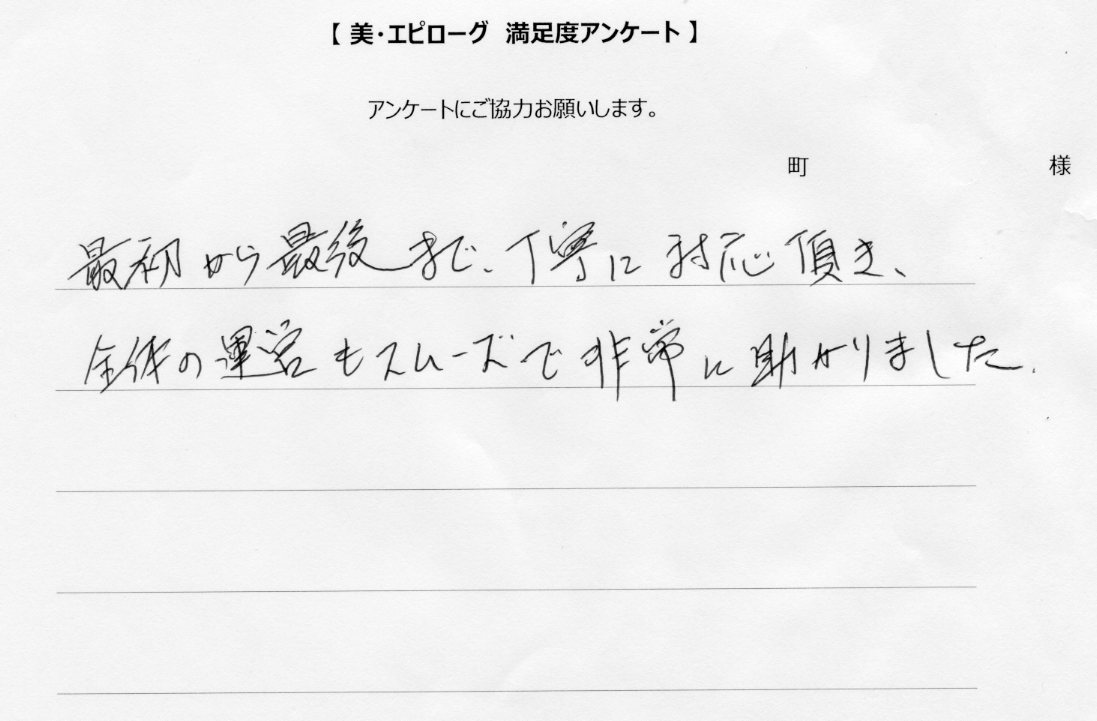 【 美・エピローグ 満足度アンケート 】
アンケートにご協力お願いします。
町 様
最初から最後まで、丁寧に対応頂き、
全体の運営もスムーズで非常に助かりました.